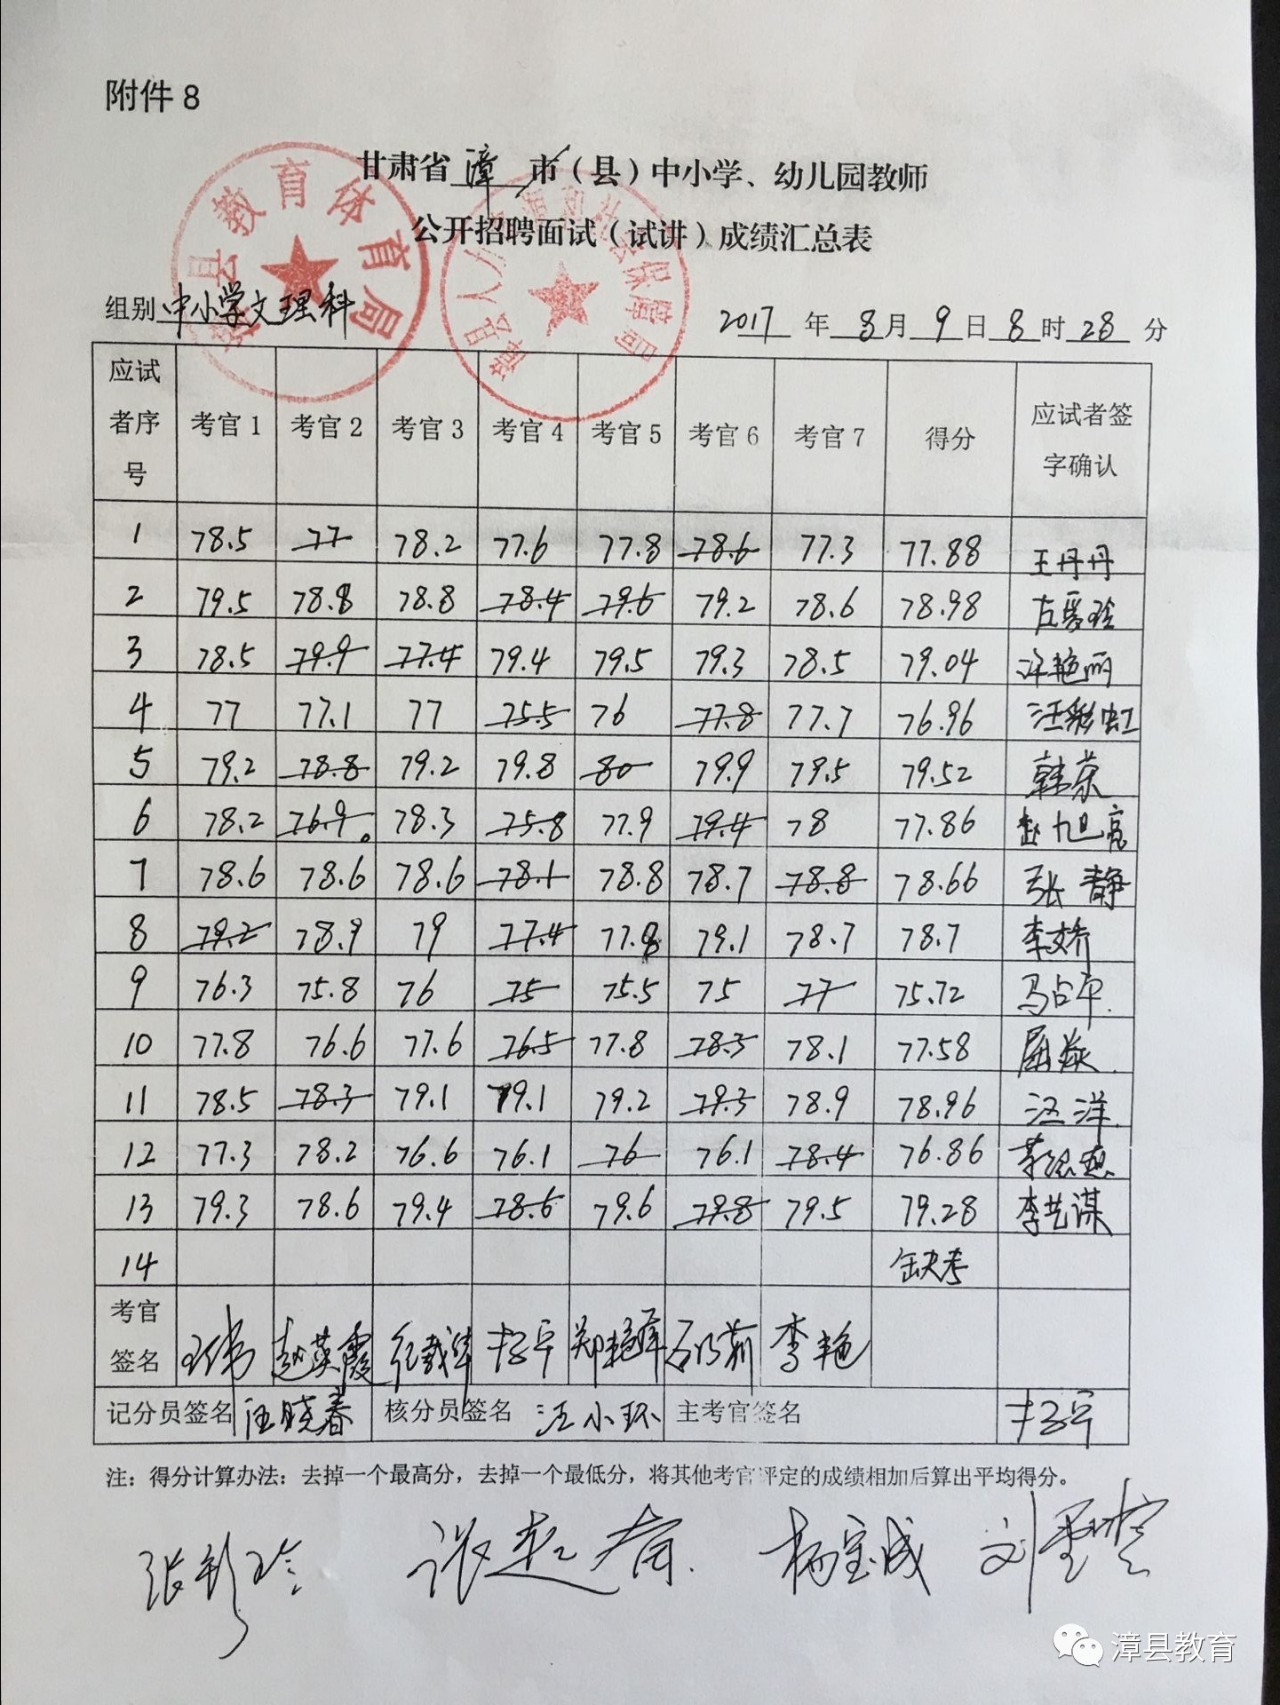 附件8
甘肃省 漳 市（县）中小学、幼儿园教师
公开招聘面试（试讲）成绩汇总表
漳县教育体育局
漳县人力资源和社会保障局
组别 中小学文理科 2017 年 8 月 9 日 8 时 28 分
应试者序号 考官1 考官2 考官3 考官4 考官5 考官6 考官7 得分 应试者签字确认
1 78.5 77 78.2 77.6 77.8 78.6 77.3 77.88 王丹丹
2 79.5 78.8 78.8 78.4 79.6 79.2 78.6 78.98
3 78.5 79.9 77.4 79.4 79.5 79.3 78.5 79.04 艳丽
4 77 77.1 77 75.5 76 77.8 77.7 76.96 汪彩虹
5 79.2 78.8 79.2 79.8 80 79.9 79.5 79.52 韩荣
6 78.2 76.9 78.3 75.8 77.9 79.4 78 77.86 赵旭亮
7 78.6 78.6 78.6 78.1 78.8 78.7 78.8 78.66 张静
8 79.2 78.9 79 77.4 77.8 79.1 78.7 78.7 李娇
9 76.3 75.8 76 75 75.5 75 77 75.72 马占平
10 77.8 76.6 77.6 76.5 77.8 78.3 78.1 77.58
11 78.5 78.3 79.1 79.1 79.2 79.3 78.9 78.96 汪洋
12 77.3 78.2 76.6 76.1 76 76.1 78.4 76.86
13 79.3 78.6 79.4 78.6 79.6 79.8 79.5 79.28 李艺谋
14 缺考
考官签名 赵英霞 李艳
记分员签名 汪晓春 核分员签名 汪小环 主考官签名
注：得分计算办法：去掉一个最高分，去掉一个最低分，将其他考官评定的成绩相加后算出平均得分。
张彩玲 杨宝成
漳县教育